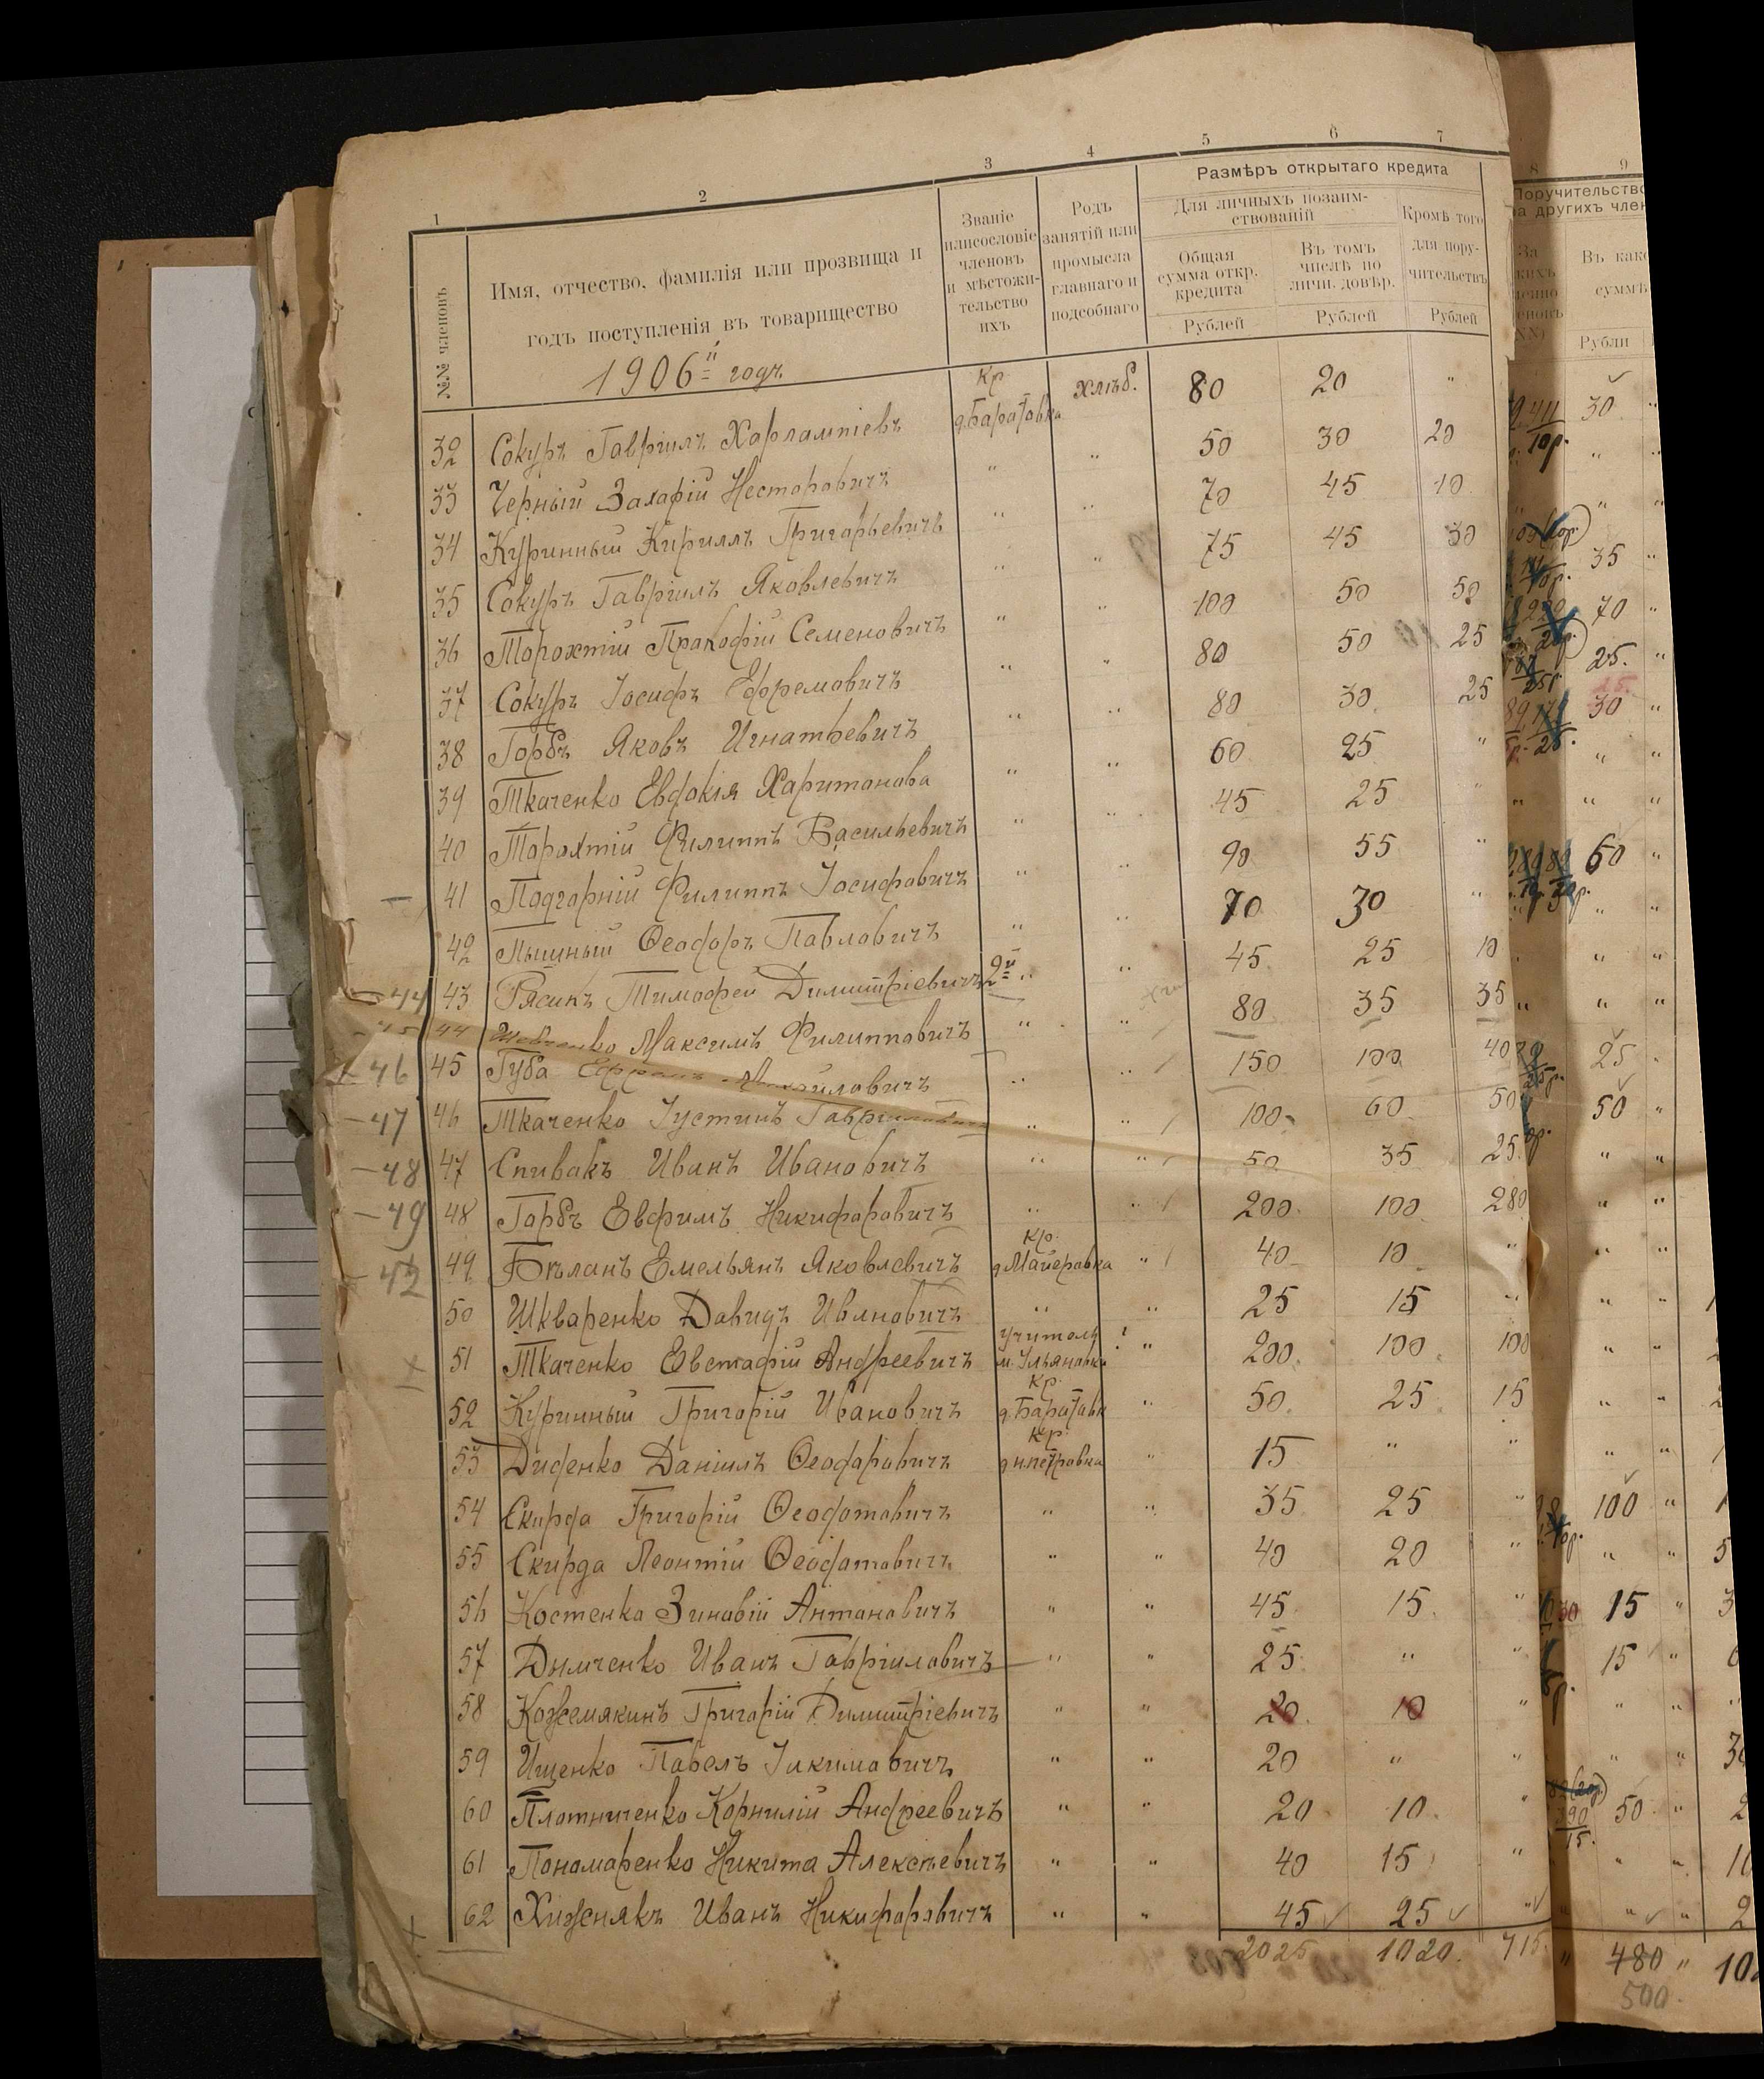 1 2 3 4 5 6 7 8 9
№№ членовъ
Имя, отчество, фамилія или прозвища и
годъ поступленія въ товарищество
1906й годъ
Званіе
илисословіе
членовъ
и мѣстожи-
тельство
ихъ
Родъ
занятій или
промысла
главнаго и
подсобнаго
Размѣръ открытаго кредита
Для личныхъ позаим-
ствованій
Общая
сумма откр.
кредита
Рублей
Въ томъ
числѣ по
личн. довѣр.
Рублей
Кромѣ того
для пору-
чительствъ
Рублей
Поручительство
за другихъ член
За
Въ как
суммѣ
Рубли
32 Сокуръ Гавріилъ Харлампіевъ Кр. д. Баратовка хлѣб. 80 20 " 30 "
33 Черный Захарій Несторовичъ " " 50 30 20 " "
34 Куринный Кириллъ Григорьевичъ " " 70 45 10 " "
35 Сокуръ Гавріилъ Яковлевичъ " " 75 45 30 35 "
36 Торохтій Прокофій Семеновичъ " " 100 50 50 70 "
37 Сокуръ Іосифъ Ефремовичъ " " 80 50 25 25. "
38 Горбъ Яковъ Игнатьевичъ " " 80 30 25 30 "
39 Ткаченко Евдокія Харитонова " " 60 25 " " "
40 Торохтій Филиппъ Васильевичъ " " 45 25 " " " "
41 Подгорній Филиппъ Іосифовичъ " " 90 55 " 60 "
42 Пышный Ѳеодоръ Павловичъ " " 70 30 " " "
44 43 Рясикъ Тимофей Димитріевичъ 2й " " 45 25 10 " "
45 44 Максимъ Филипповичъ " " 80 35 35 " " "
46 45 Губа " " 150 100 40 25 "
47 46 Ткаченко Іустинъ " " 100 60 50 50 "
48 47 Спивакъ Иванъ Ивановичъ " " 50 35 25 " "
49 48 Горбъ Евфимъ Никифоровичъ " " 200 100 280 " "
49 Бѣланъ Емельянъ Яковлевичъ Кр. д. Майеровка " 40 10 " " "
50 Шкваренко Давидъ Ивановичъ " " 25 15 " " "
51 Ткаченко Евстафій Андреевичъ учитель м. Ульяновка " 200 100 100 " "
52 Куринный Григорій Ивановичъ Кр. д. Баратовк " 50 25 15 " "
53 Диденко Даніилъ Ѳеодоровичъ Кр. " 15 " " " "
54 Скирда Григорій Ѳеодотовичъ " " 35 25 " 100 "
55 Скирда Леонтій Ѳеодотовичъ " " 40 20 " " " 5
56 Костенко Зиновій Антоновичъ " " 45 15 " 15 " 3
57 Дымченко Иванъ Гавріиловичъ " " 25 " " 15 "
58 Кожемякинъ Григорій Димитріевичъ " " 20 10 " " "
59 Ищенко Павелъ Іакимовичъ " " 20 " " " "
60 Плотниченко Корнилій Андреевичъ " " 20 10 " 50 " 2
61 Пономаренко Никита Алексѣевичъ " " 40 15 " " "
62 Хижнякъ Иванъ Никифоровичъ " " 45 25 " " " 2
2025 1020. 715 " 480 "
500